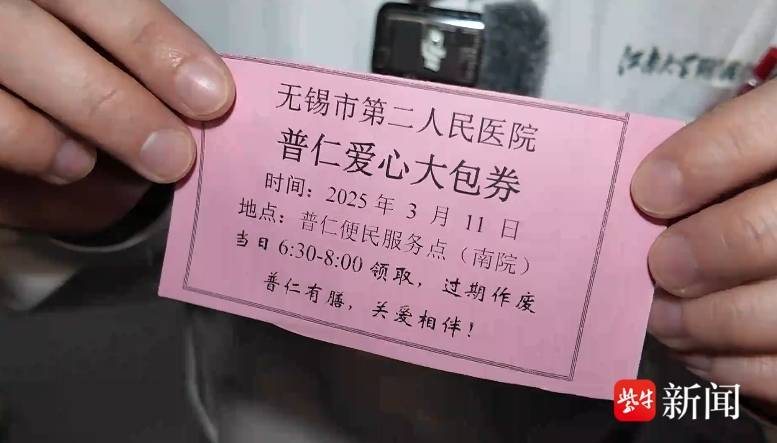 无锡市第二人民医院
普仁爱心大包券
时间：2025 年 3 月 11 日
地点：普仁便民服务点（南院）
当日 6:30-8:00 领取，过期作废
普仁有膳，关爱相伴！
紫牛新闻